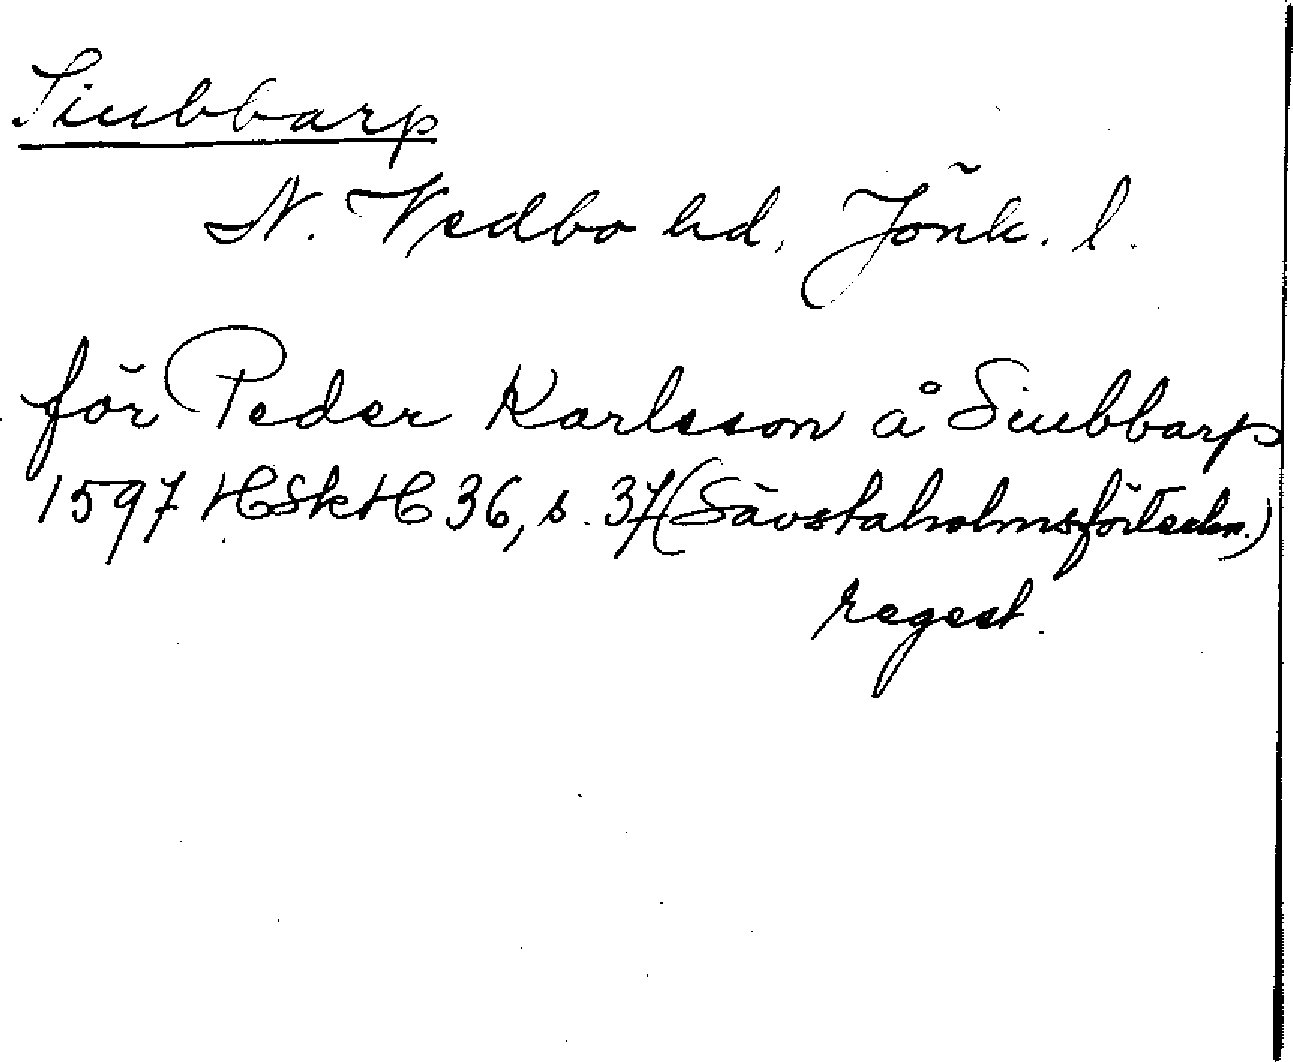 Siubbarp
N. Vedbo hd, Jönk. l.
för Peder Karlsson å Siubbarp
1597 HSkH 36, s. 37 (Sävstaholmsförteckn.)
regest.